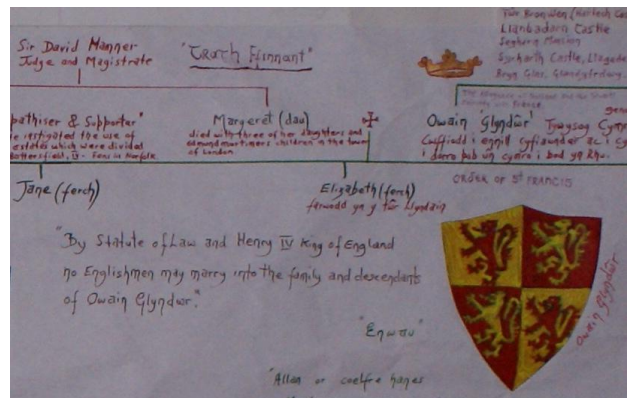 Twr Bronwen (Harlech Cas
Llanbadarn Castle
Seghern Mansion
Sycharth Castle, Llagade
Bryn Glas, Glandyfrdwy.
Sir David Hanner
Judge and Magistrate
"Croch Ffinnant"
pathiser & Supporter"
instigated the use of
estates which were divided
Fens in Norfolk
Margeret (dau)
died with three of her daughters and
edmund mortimers children in the tower
of London
Owain 'Glyndŵr' Tywysog Cymr
Cuffiodd i ennill cyfiawnder ac i
i dorro bob un cymro i bod yn Rhu.
Jane (ferch)
Elizabeth (ferch)
farwodd yn y tŵr Llyndain
ORDER OF ST FRANCIS
"By Statute of Law and Henry IV King of England
no Englishmen may marry into the family and descendants
of Owain Glyndwr."
Owain Glyndŵr
"Enwau"
"Allan or coelfre hanes